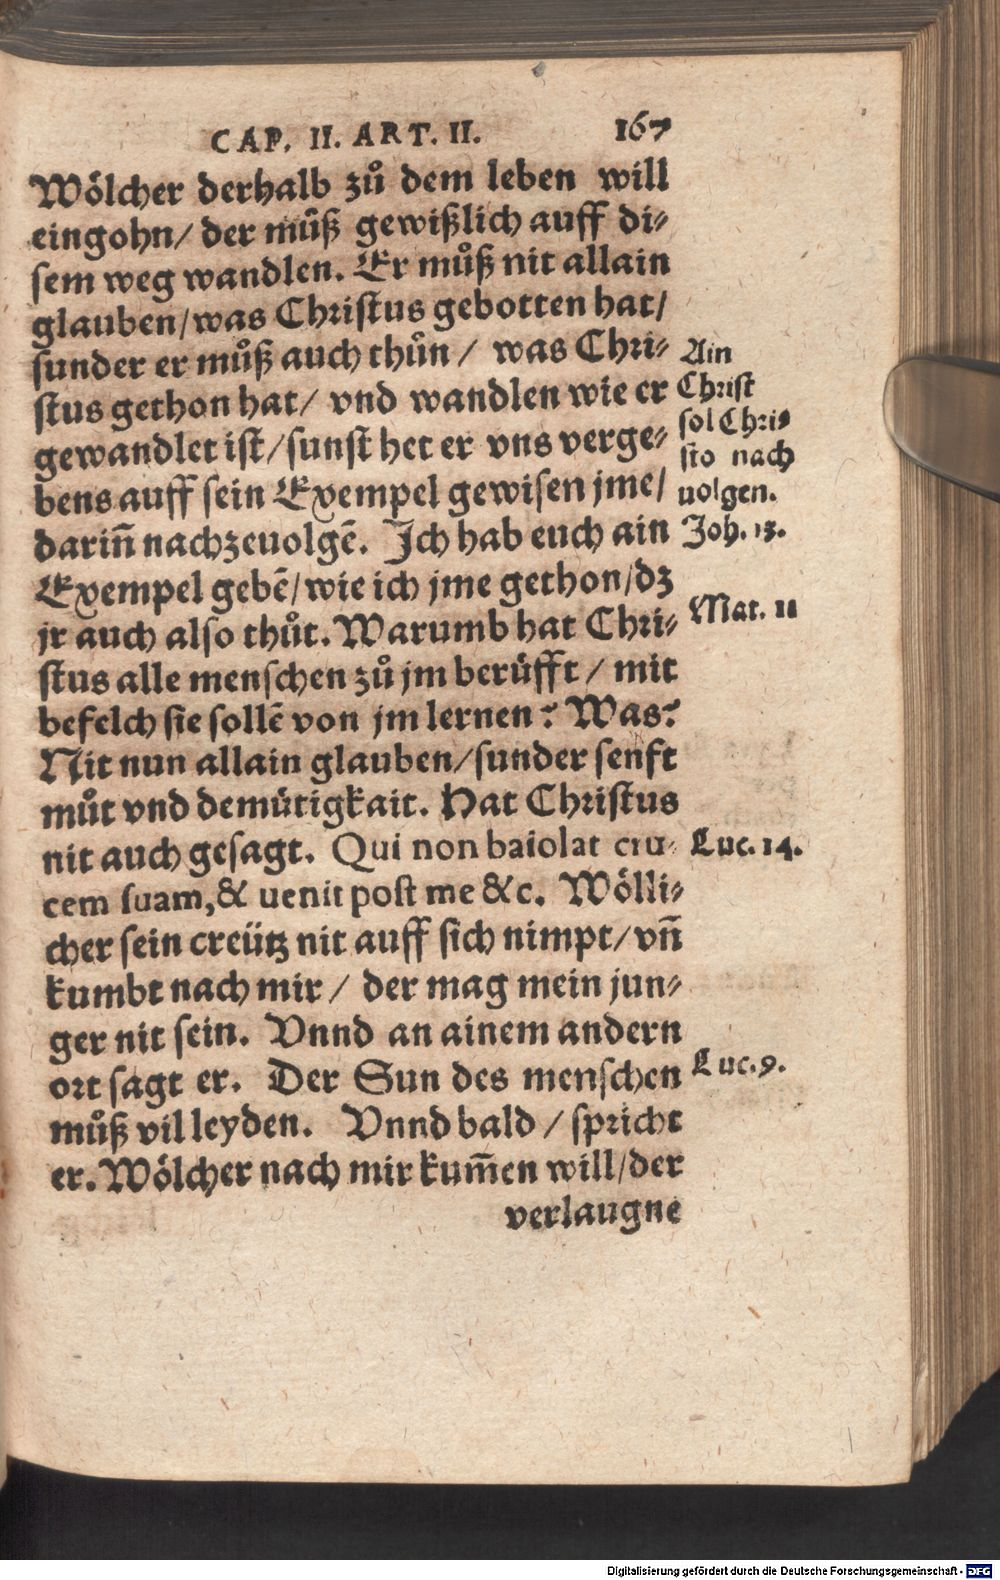 CAP. II. ART. II. 167
Wölcher derhalb zů dem leben will
eingohn/ der můß gewißlich auff di⸗
sem weg wandlen. Er můß nit allain
glauben/was Christus gebotten hat/
sunder er můß auch thůn / was Chri⸗
stus gethon hat/ vnd wandlen wie er
gewandlet ist/sunst het er vns verge⸗
bens auff sein Exempel gewisen jme/
dariñ nachzeuolgẽ. Ich hab euch ain
Exempel gebẽ/wie ich jme gethon/dz
jr auch also thůt. Warumb hat Chri⸗
stus alle menschen zů jm berüfft / mit
befelch sie sollẽ von jm lernen? Was?
Nit nun allain glauben/sunder senfft
můt vnd demütigkait. Hat Christus
nit auch gesagt. Qui non baiolat cru⸗
cem suam,& uenit post me &c. Wölli⸗
cher sein creütz nit auff sich nimpt/vñ
kumbt nach mir / der mag mein jun⸗
ger nit sein. Vnnd an ainem andern
ort sagt er. Der Sun des menschen
můß vil leyden. Vnnd bald / spricht
er. Wölcher nach mir kum̃en will/der
verlaugne
Ain
Christ
sol Chri⸗
sto nach
uolgen.
Joh. 13.
Mat. 11
Luc. 14.
Luc. 9.
Digitalisierung gefördert durch die Deutsche Forschungsgemeinschaft - DFG